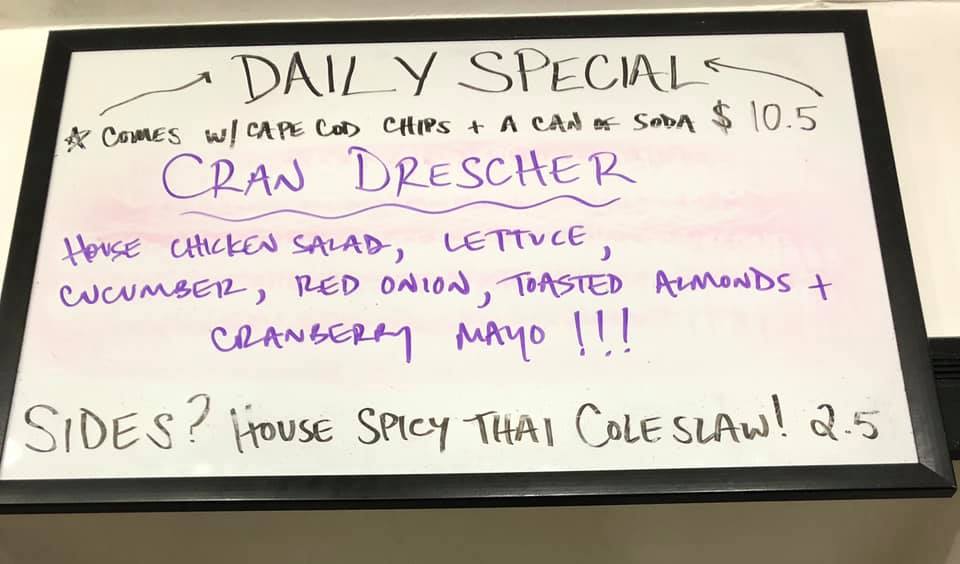 DAILY SPECIAL
☆ COMES W/ CAPE COD CHIPS + A CAN OF SODA $ 10.5
CRAN DRESCHER
HOUSE CHICKEN SALAD, LETTUCE,
CUCUMBER, RED ONION, TOASTED ALMONDS +
CRANBERRY MAYO !!!
SIDES? HOUSE SPICY THAI COLESLAW! 2.5